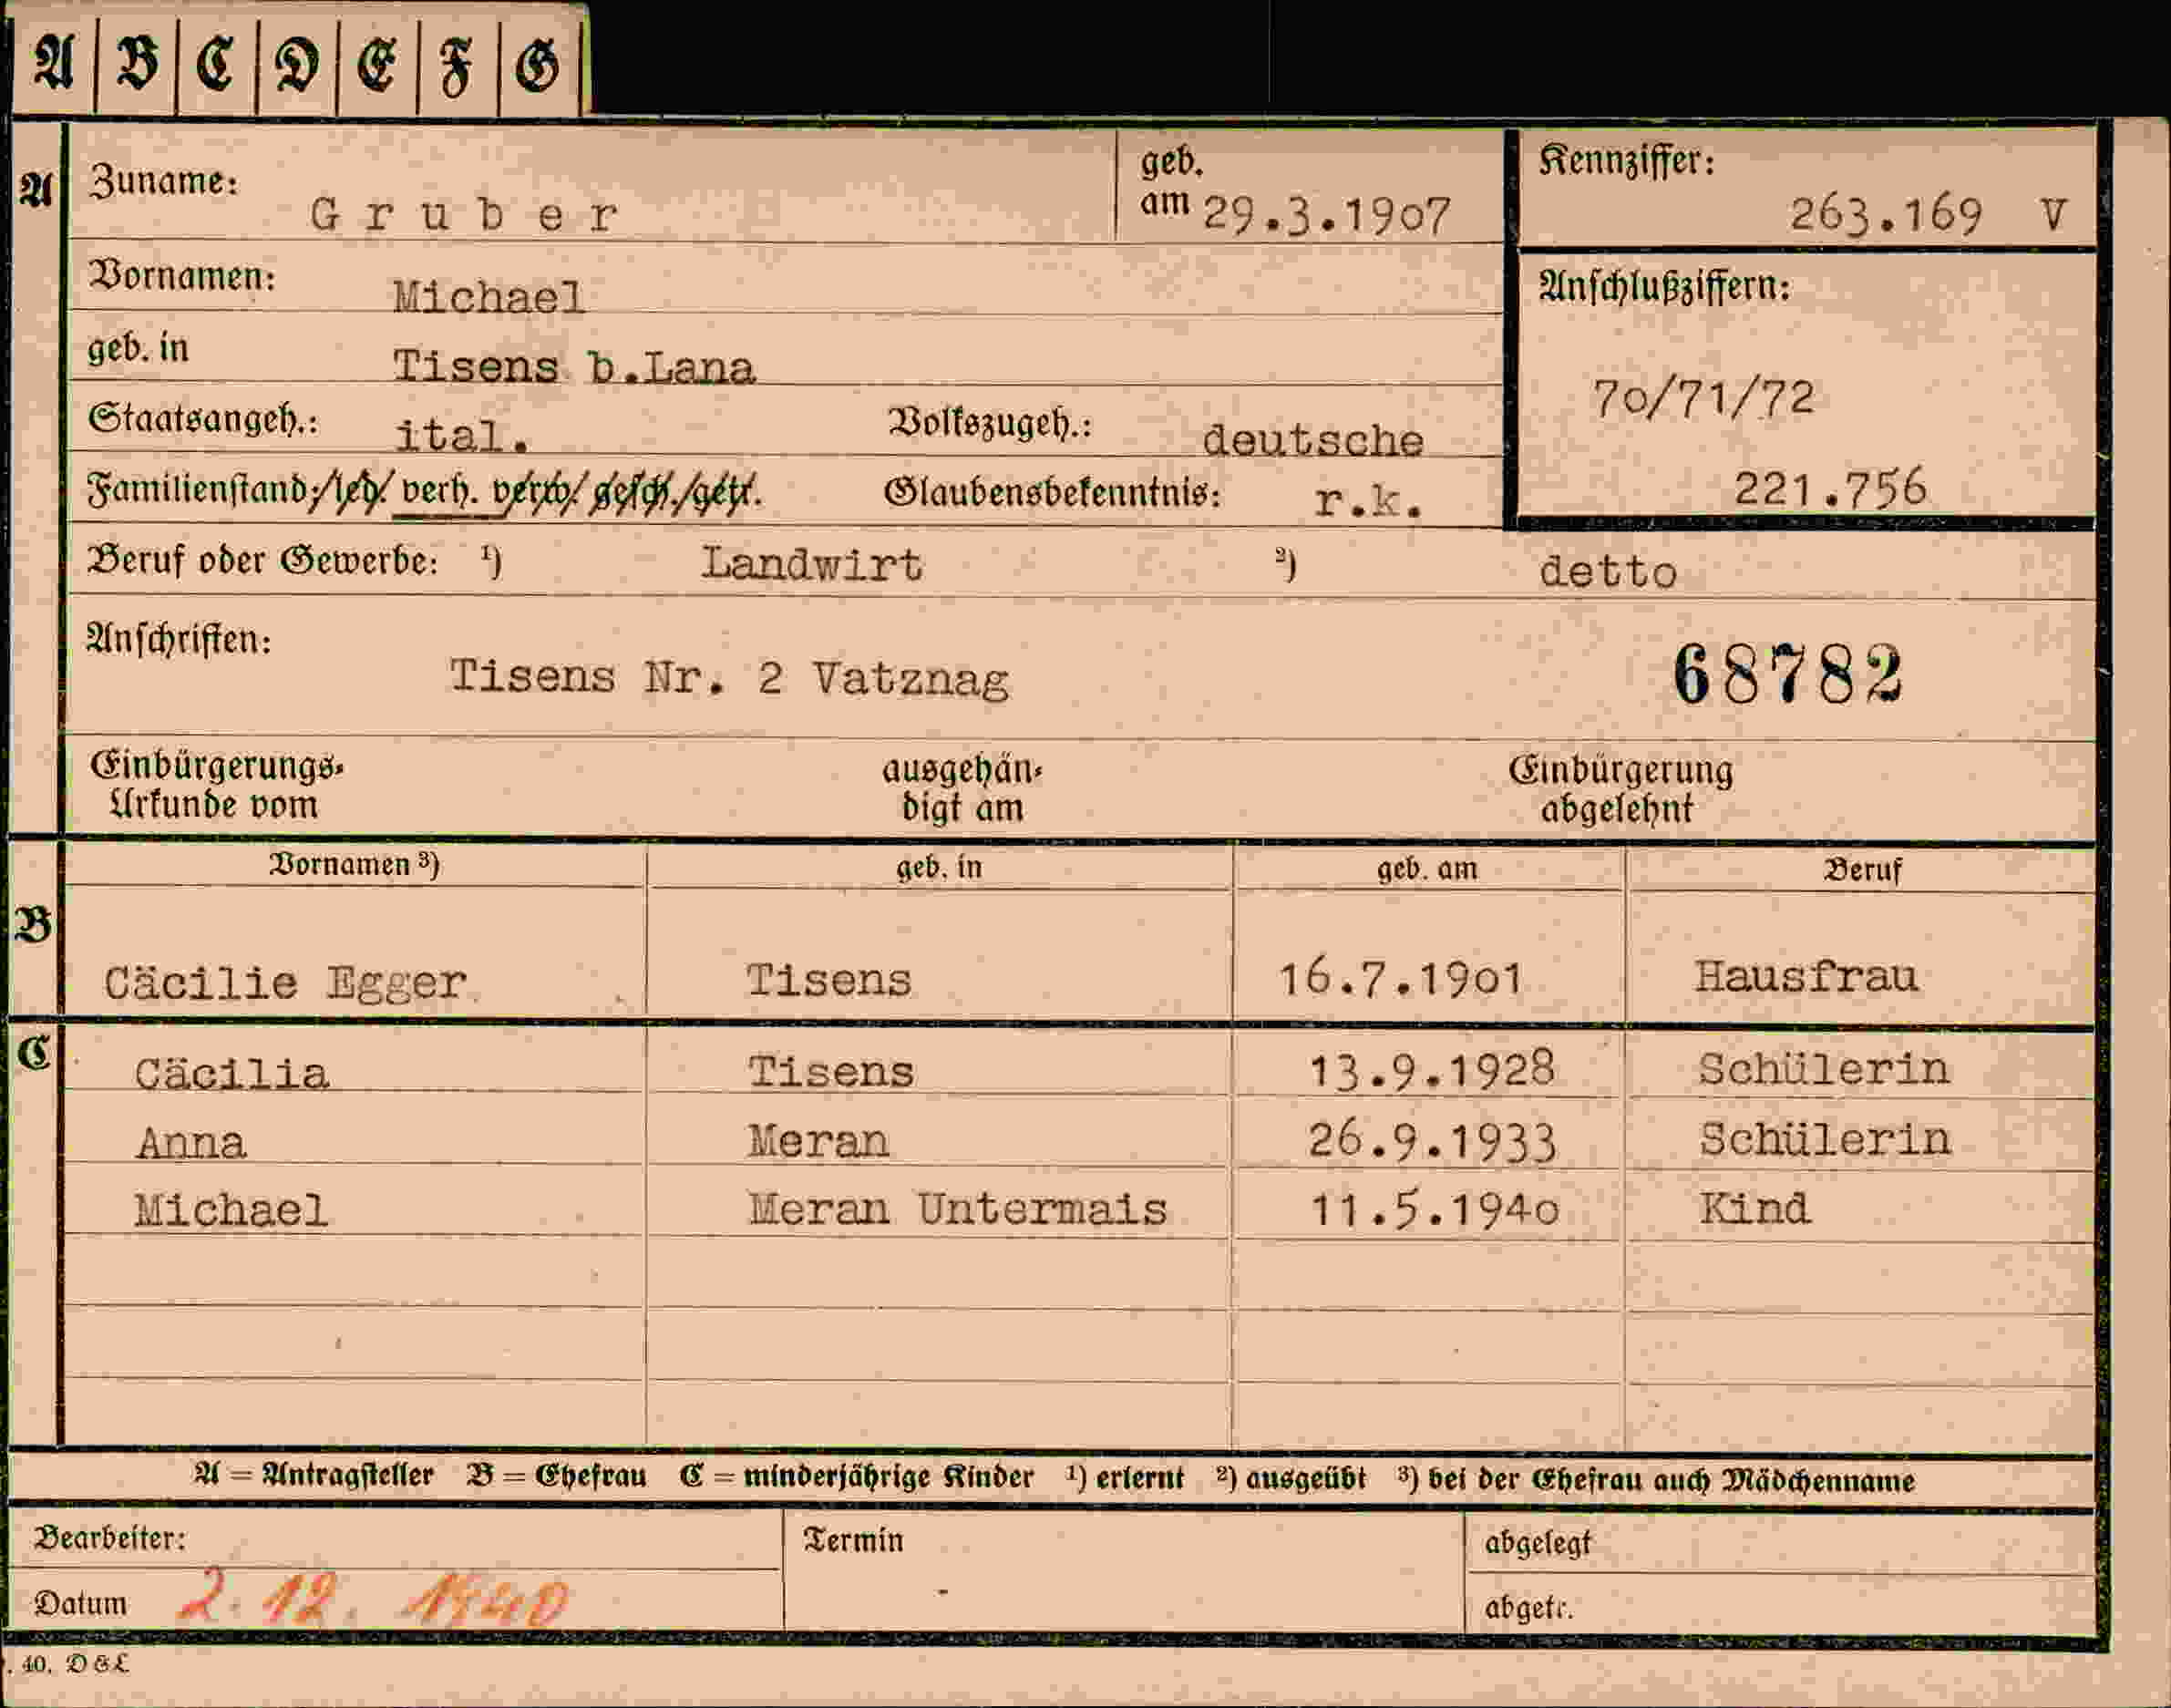 A B C D E F G
A Zuname: Gruber geb. am 29.3.1907 Kennziffer: 263.169 V
Vornamen: Michael Anschlußziffern:
geb. in Tisens b.Lana 70/71/72
Staatsangeh.: ital. Volkszugeh.: deutsche
Familienstand: led. verh. verw. gesch. getr. Glaubensbekenntnis: r.k. 221.756
Beruf oder Gewerbe: ¹) Landwirt ²) detto
Anschriften: Tisens Nr. 2 Vatznag 68782
Einbürgerungs- ausgehän- Einbürgerung
Urkunde vom digt am abgelehnt
Vornamen ³) geb. in geb. am Beruf
B Cäcilie Egger Tisens 16.7.1901 Hausfrau
C Cäcilia Tisens 13.9.1928 Schülerin
Anna Meran 26.9.1933 Schülerin
Michael Meran Untermais 11.5.1940 Kind
A = Antragsteller B = Ehefrau C = minderjährige Kinder ¹) erlernt ²) ausgeübt ³) bei der Ehefrau auch Mädchenname
Bearbeiter: Termin abgelegt
Datum 2.12.1940 abgetr.
. 40. D G L